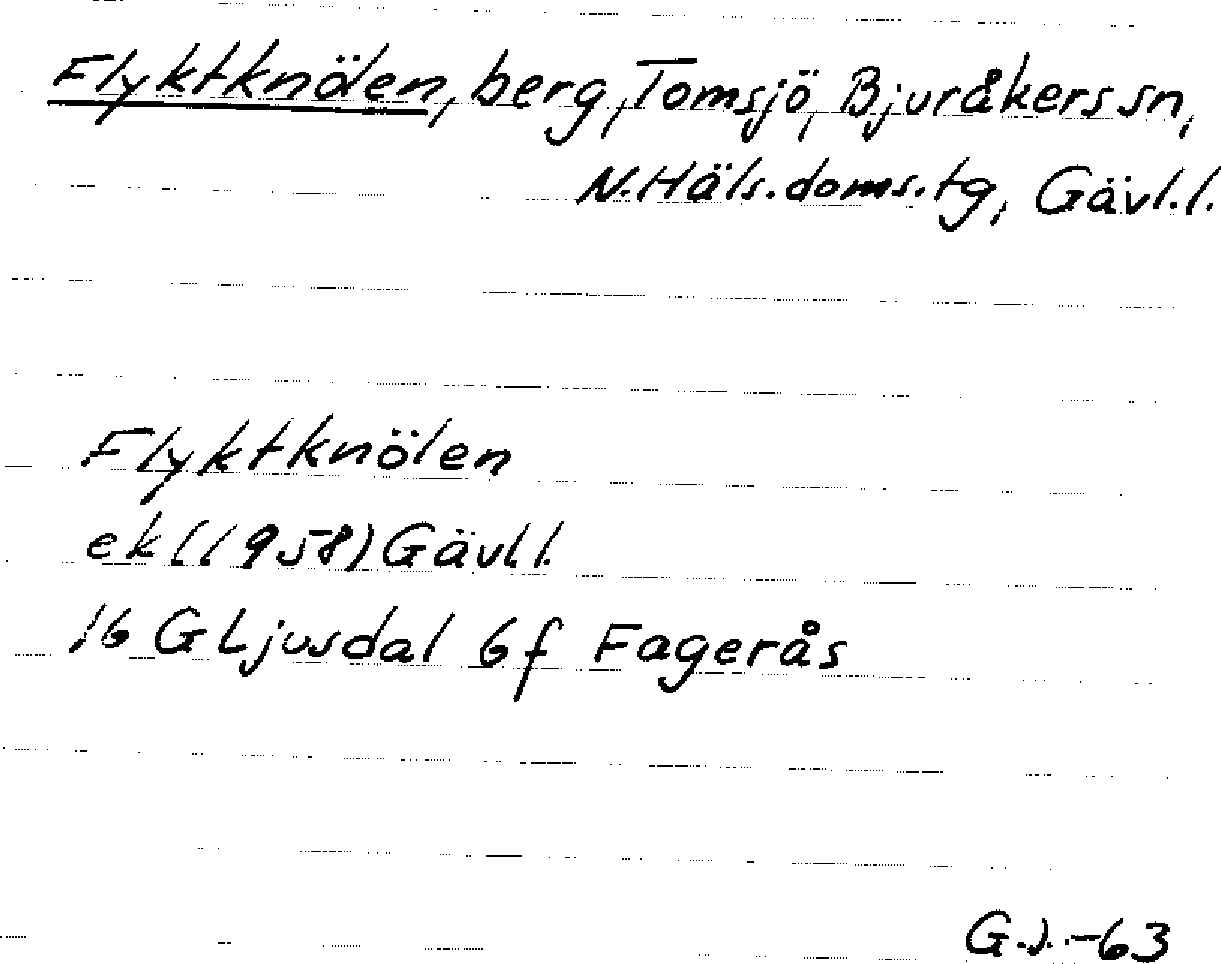 Flyktknölen, berg, Tomsjö, Bjuråkers sn,
N.Häls.doms.tg, Gävl.l.
Flyktknölen
ek (1958) Gävl.l.
16 G Ljusdal 6f Fagerås
G.J.-63